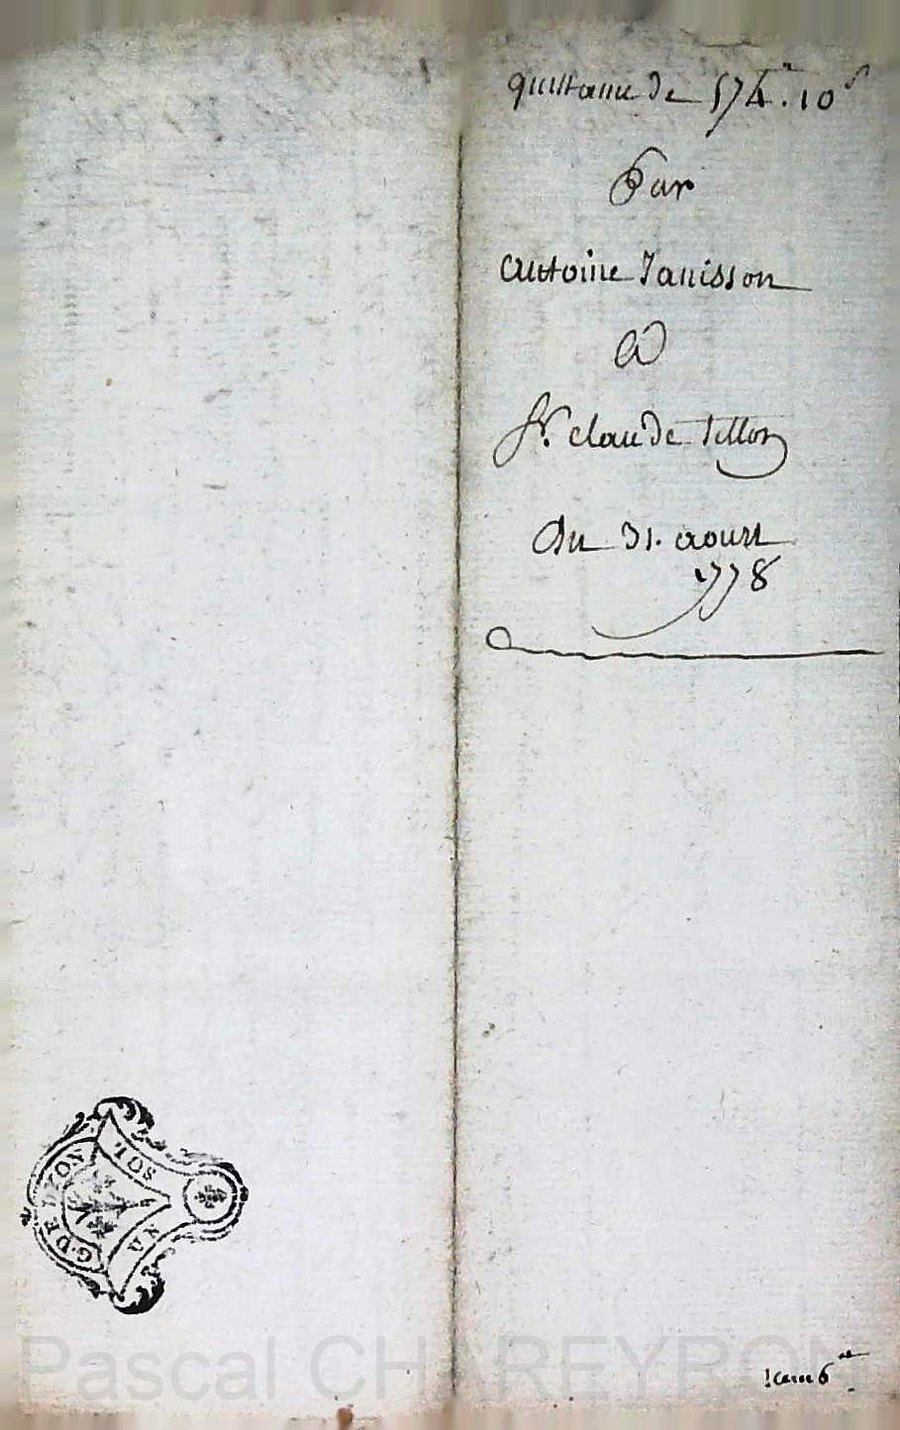 quittance de 574#. 10s
Par
Antoine Janisson
A
Sr. claude tillon
Du 31. aoust
1778
G. DE LYON
SOL
Pascal CHAREYRON